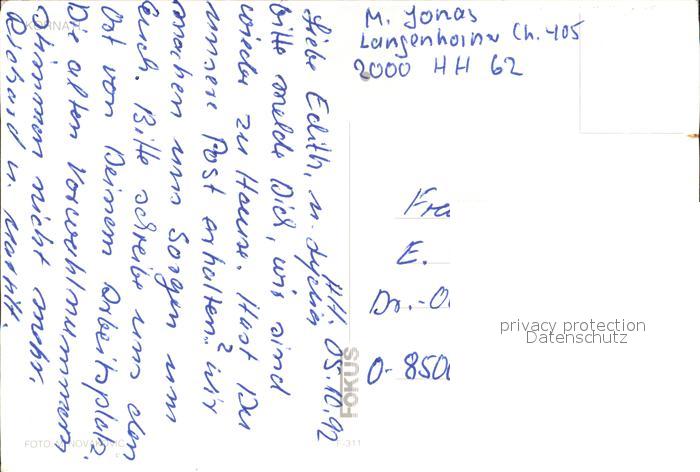 M. Jonas
Langenhorner Ch. 405
2000 HH 62
HH. 05.10.92
Liebe Edith, u. Lydia
bitte melde Dich, wir sind
wieder zu Hause. Hast Du
unsere Post erhalten? Wir
machen uns Sorgen um
Euch. Bitte schreibe uns den
Ort von Deinem Arbeitsplatz.
Die alten Vorwahlnummern
stimmen nicht mehr.
Richard u.
Frau
E.
Dr.-O
O-850
privacy protection
Datenschutz
FOKUS